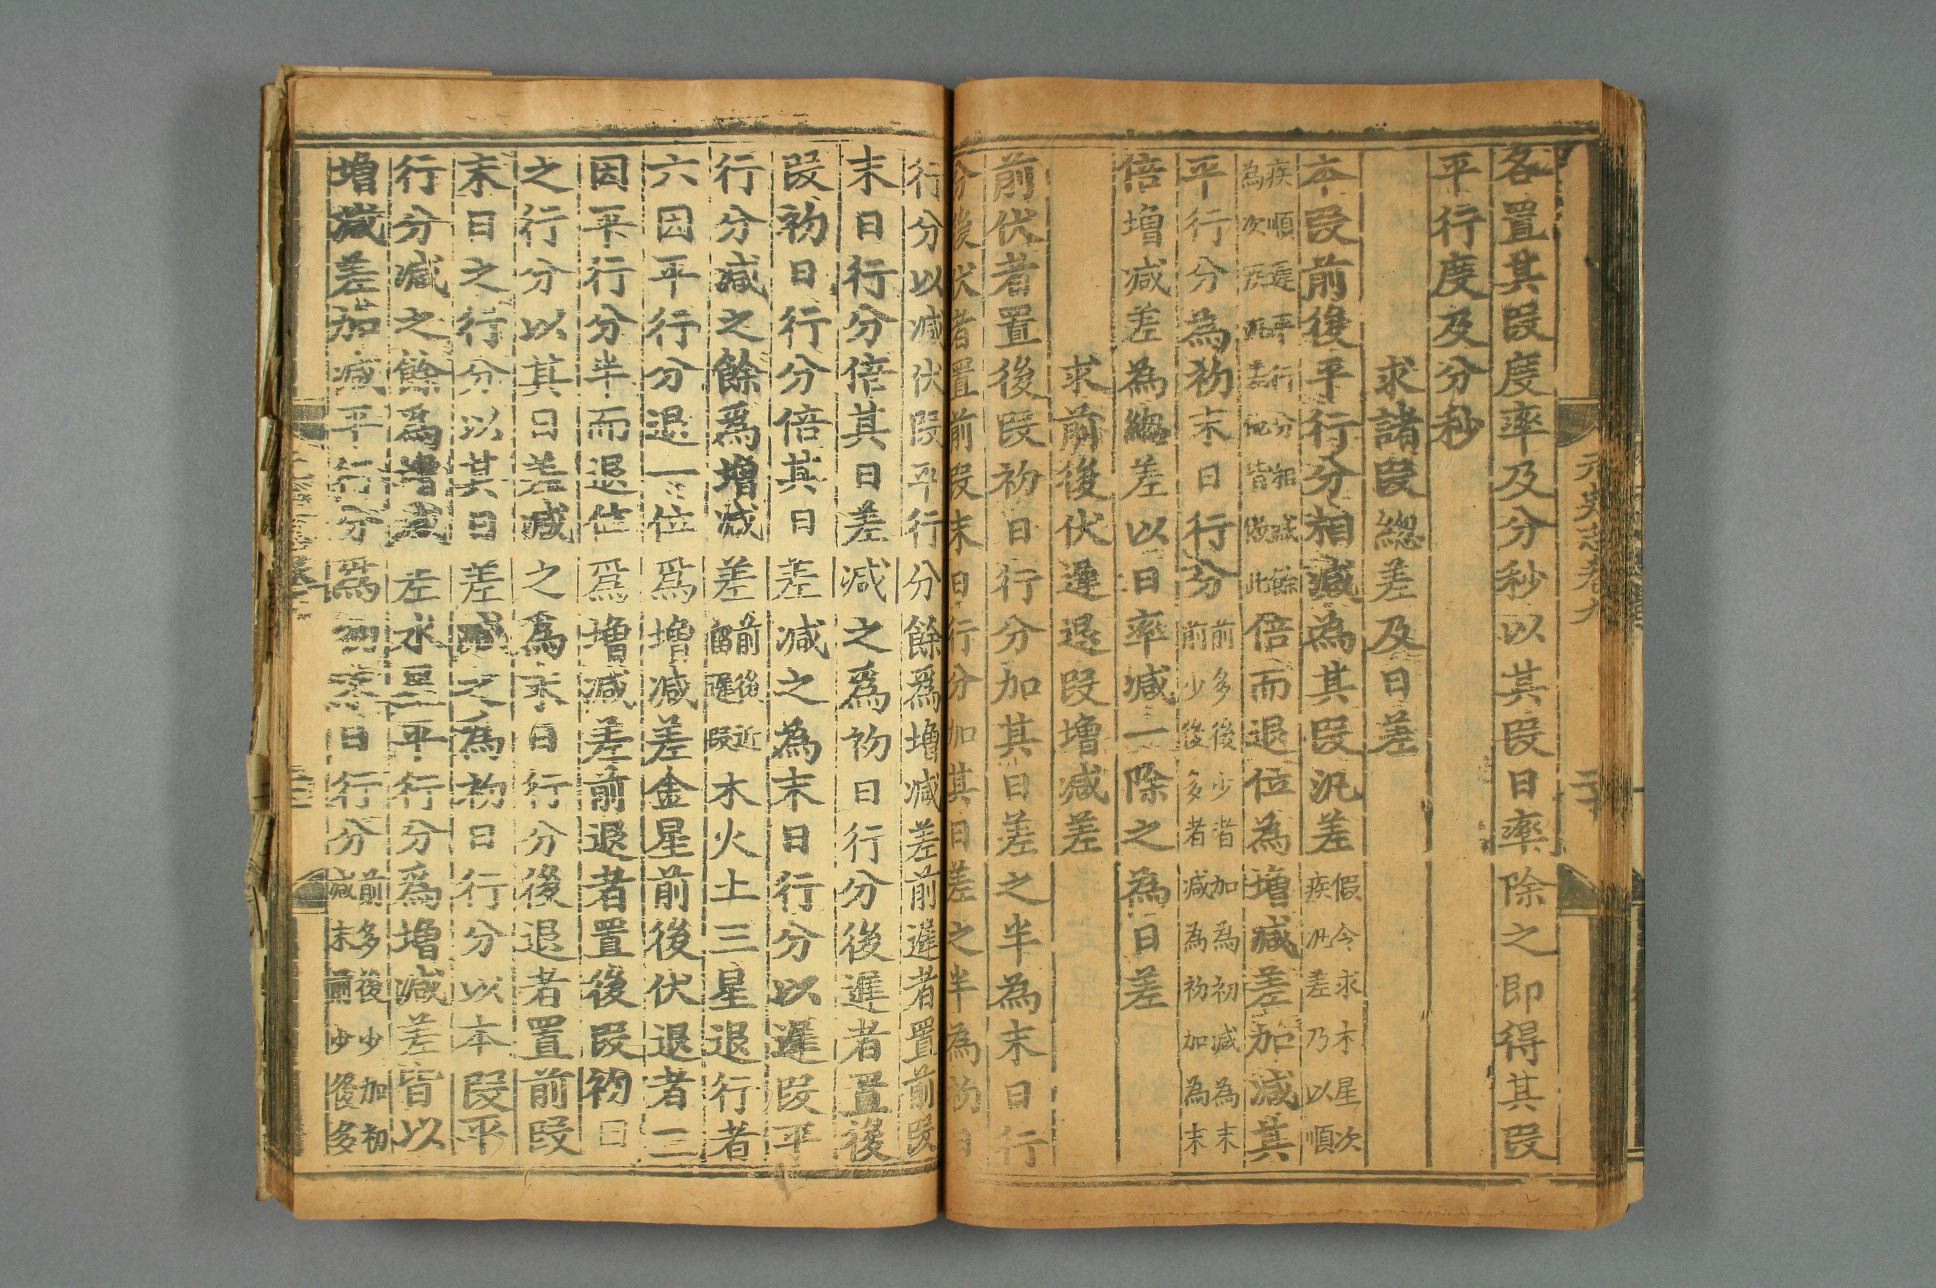 元史志卷九
二十
各置其段度率及分秒以其段日率除之即得其段
平行度及分秒
求諸段緫差及日差
本段前後平行分相減為其段汎差假令求木星次
疾汎差乃以順
疾順遲平行分相減餘
為次疾汎差他皆倣此倍而退位為增減差加減其
平行分為初末日行分前多後少者加為初減為末
前少後多者減為初加為末
倍增減差為緫差以日率減一除之為日差
求前後伏遲退段增減差
前伏者置後段初日行分加其日差之半為末日行
分後伏者置前段末日行分加其日差之半為初日
行分以減伏段平行分餘爲增減差前遲者置前段
末日行分倍其日差減之爲初日行分後遲者置後
段初日行分倍其日差減之為末日行分以遲段平
行分減之餘爲增減差前後近
留遲段木火土三星退行者
六因平行分退一位爲增減差金星前後伏退者三
因平行分半而退位爲增減差前退者置後段初日
之行分以其日差減之爲末日行分後退者置前段
末日之行分以其日差減之爲初日行分以本段平
行分減之餘爲增減差水星平行分爲增減差皆以
增減差加減平行分爲初末日行分前多後少加初
減末前少後多